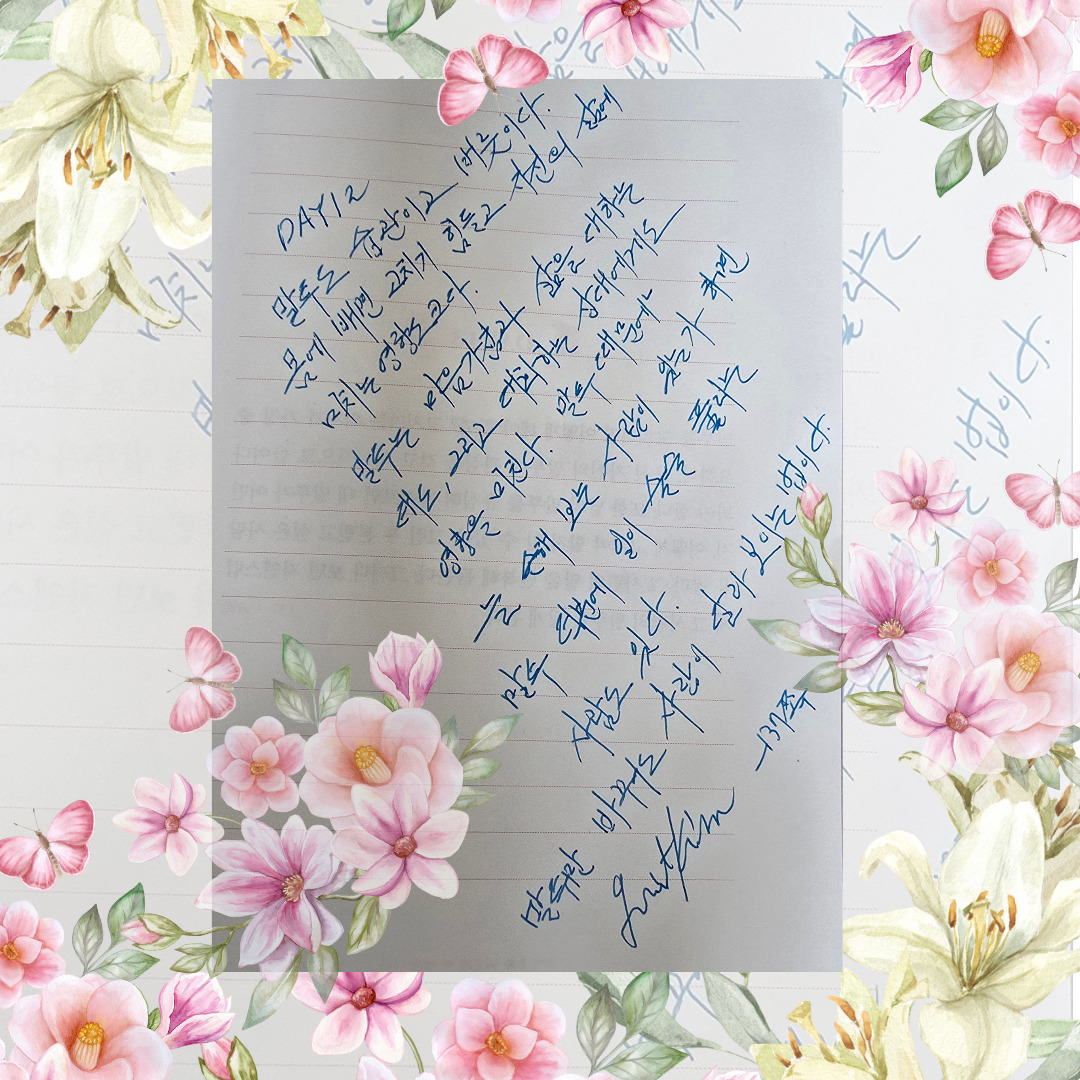 DAY12
말투는 습관이고 버릇이다.
몸에 배면 고치기 힘들고 자신의 삶에
미치는 영향도 크다.
말투는 마음가짐과 삶을 대하는
태도, 그리고 대화하는 상대에게도
영향을 미친다. 말투 때문에
늘 손해 보는 사람이 있는가 하면
말투 덕분에 일이 술술 풀리는
사람도 있다.
말투만 바꾸어도 사람이 달라 보이는 법이다.
-137쪽